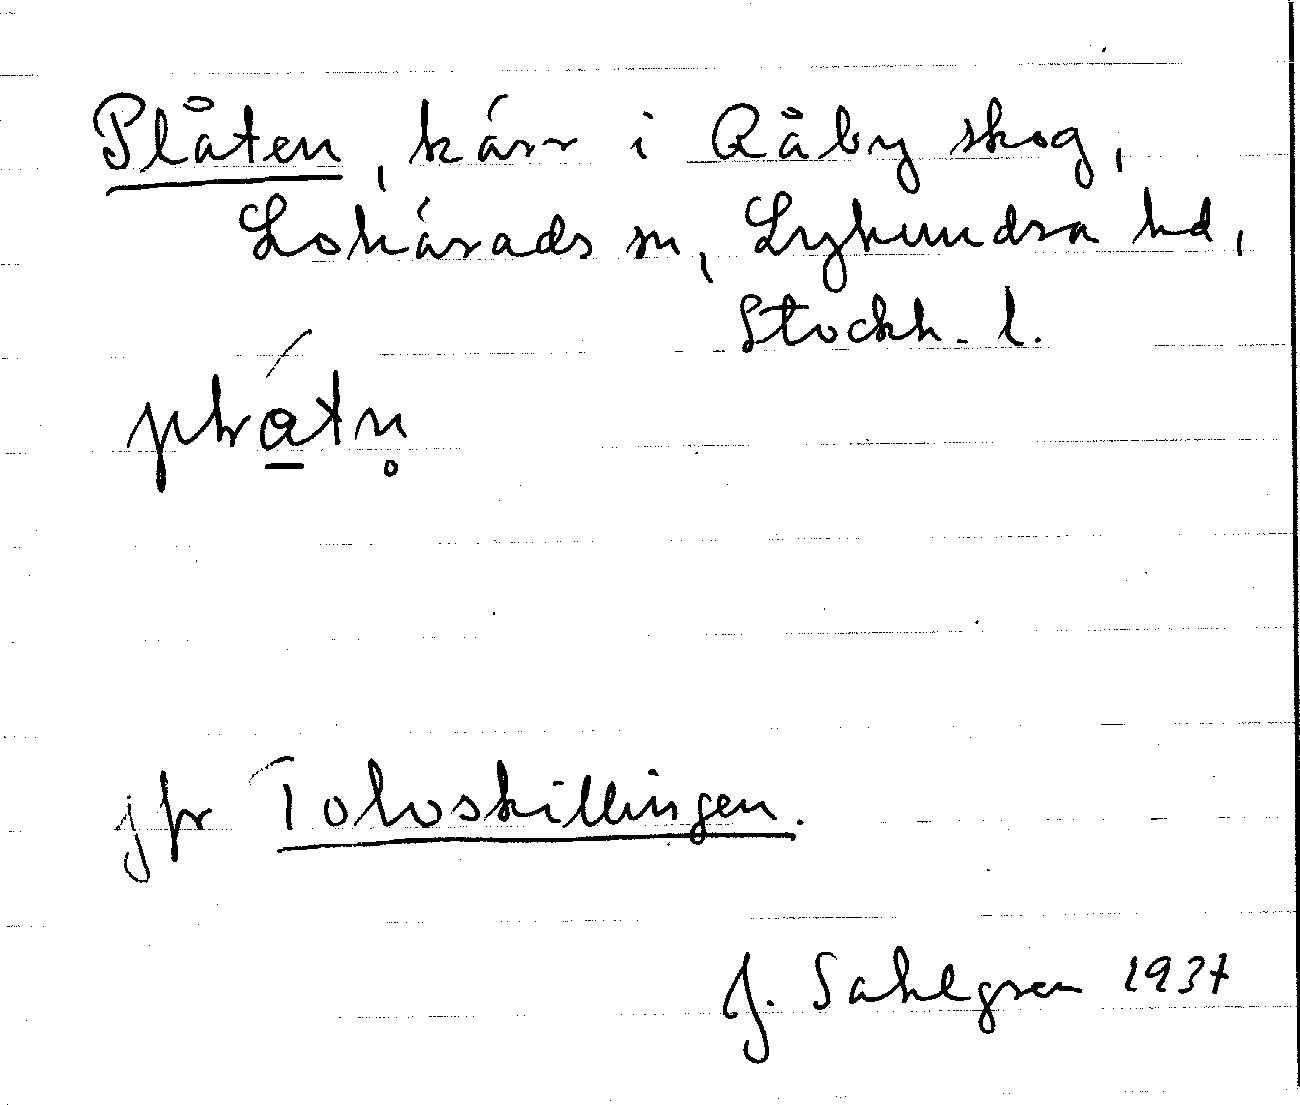 Plåten, kärr i Råby skog,
Lohärads sn, Lyhundra hd,
Stockh. l.
jfr Tolvskillingen.
J. Sahlgren 1937